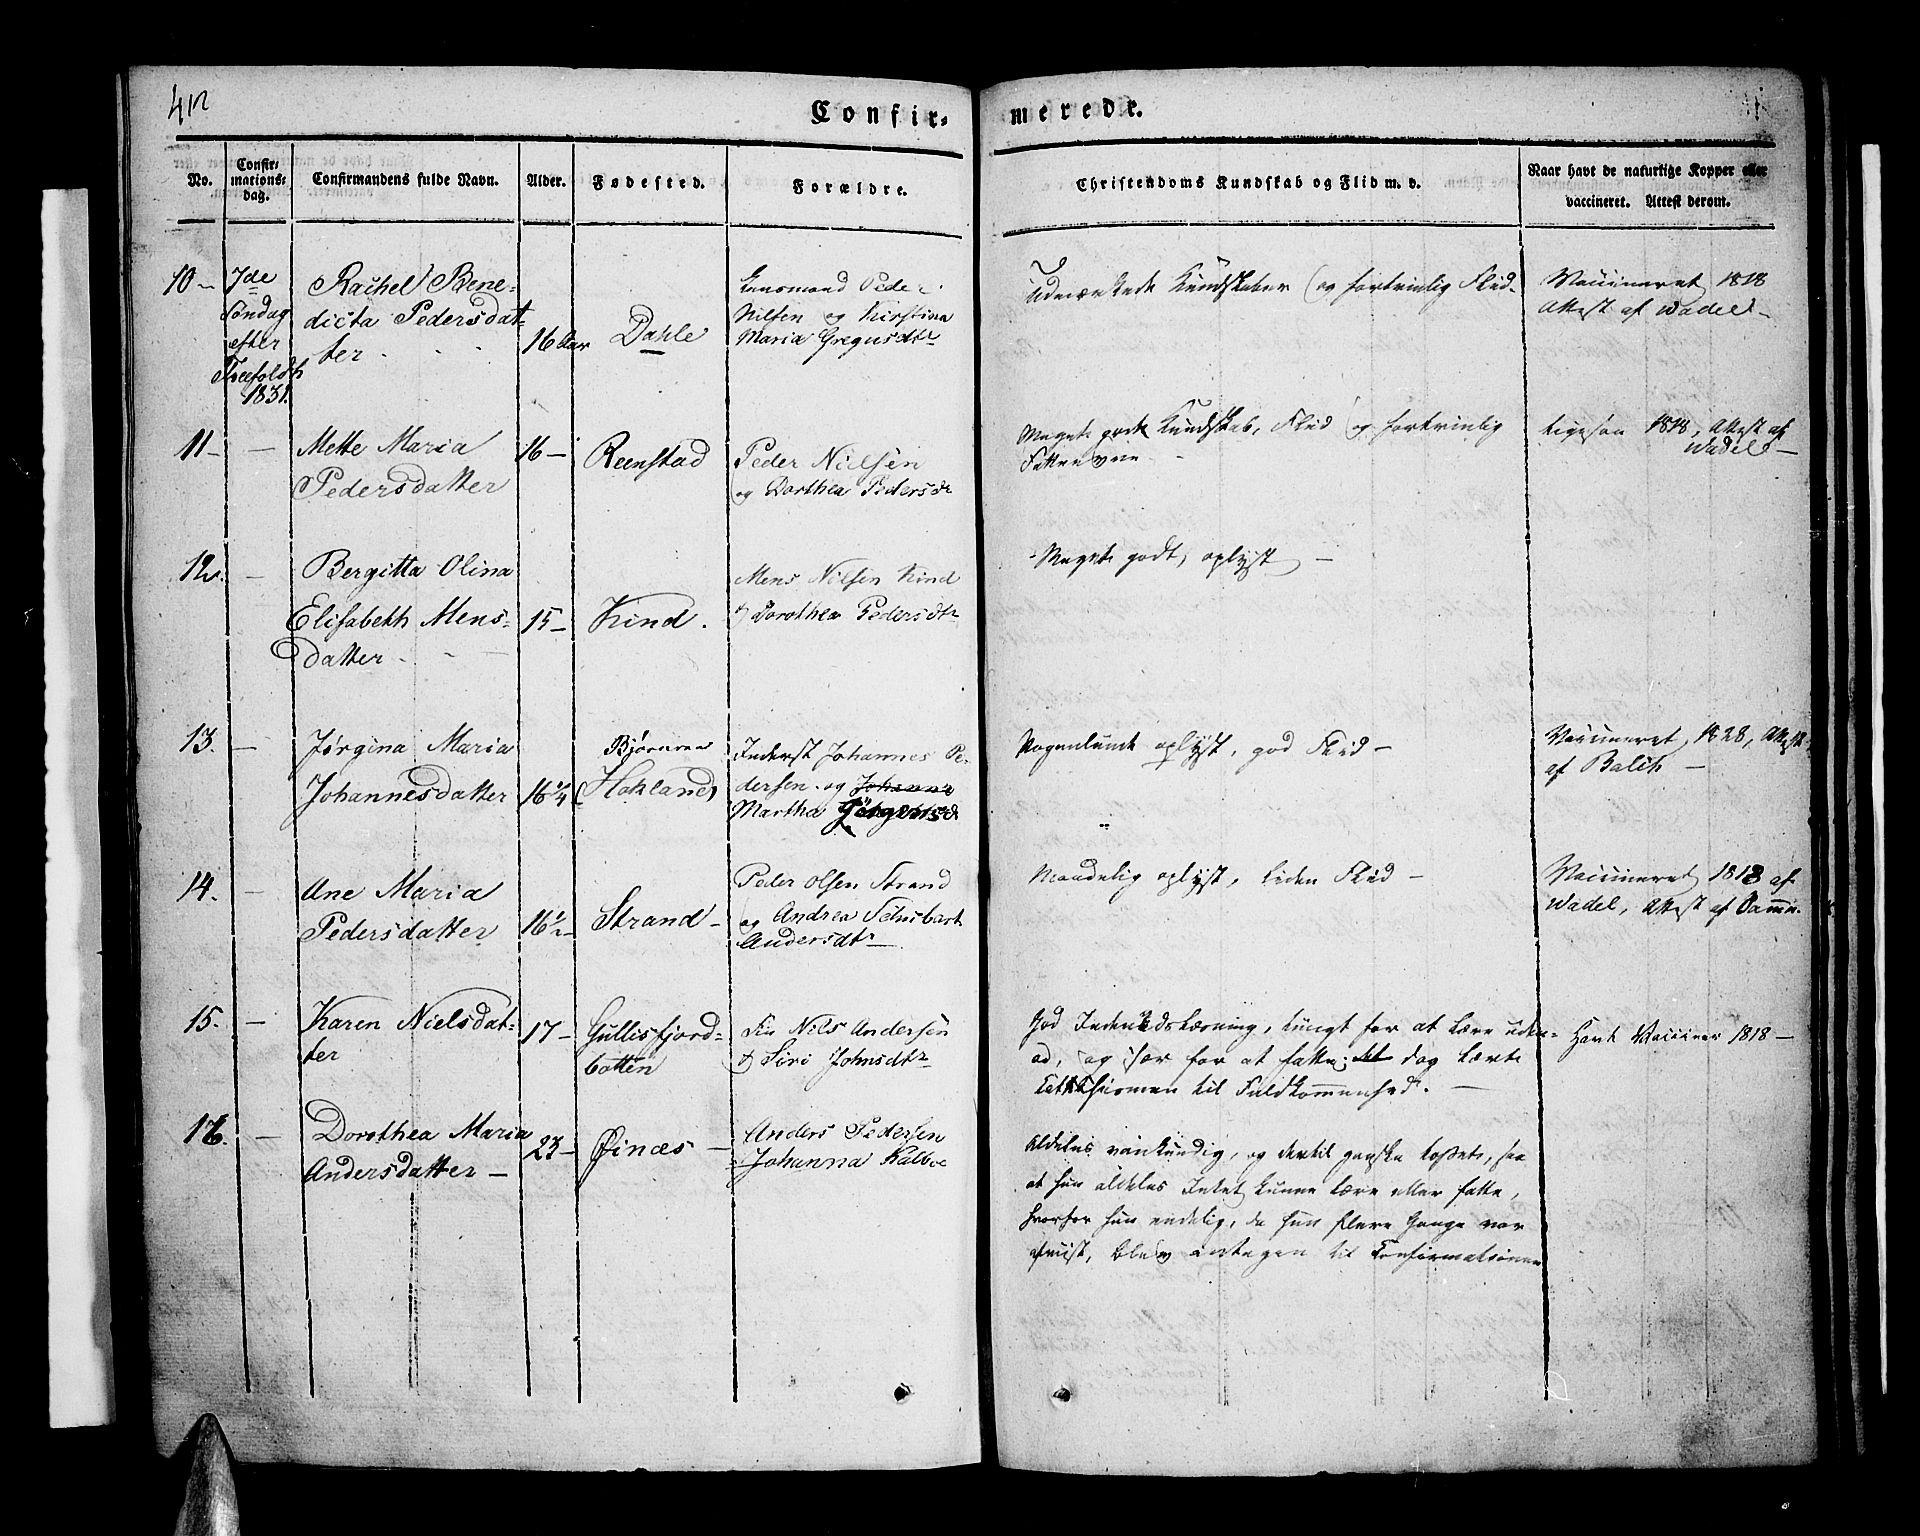 412
Confir-
merede.
No.
Confir-
mations-
dag.
Confirmandens fulde Navn.
Alder.
Fødested.
Forældre.
Christendoms Kundskab og Flid m. v.
Naar havt de naturlige Kopper eller
vaccineret. Attest derom.
10-
7de
Søndag
efter
Trefoldh
1831.
Rachel Bene-
dicta Pedersdat-
ter
16 Aar
Dahle
Peder
Nilsen og Kirstina
Maria Gregusdtr
Udmærkede Kundskaber og fortrinlig Flid.
Vaccineret 1818
Attest af Wadel
11-
Mette Maria
Pedersdatter
16-
Reenstad
Peder Nielsen
og Dorthea Pedersdr
Meget gode Kundskab, Flid og fortrinlig
Fatteevne
ligesaa 1818, Attest af
Wadel
12.
Bergitta Olina
Elisabeth Mens-
datter
15-
Kind.
Mens Nilsen Kind
Dorothea Pedersdtr
Meget godt oplyst
13.
Jørgina Maria
Johannesdatter
16 1/4
Hokland
Inderst Johannes Pe-
dersen og Johanna
Martha Jörgensd
Nogenlunde oplyst, god Flid
Vaccineret 1828, Attest
af Balch
14.
Ane Maria
Pedersdatter
16 1/2
Strand
Peder Olsen Strand
og Andrea
Andersdtr
Maadelig oplyst, liden Flid
Vaccineret 1818 af
Wadel, Attest af Samme
15.
Karen Nielsdat-
ter
17-
Gullisfjord-
botten
Fin Nils Andersen
Siri Johnsdtr
God Indenadslæsning, tungt for at lære uden-
ad, og for at fatte; dog lærte
til Fuldkommenhed.
Havt Vacciner 1818
16.
Dorothea Maria
Andersdatter
23-
Øinæs
Anders Pedersen
Johanna
Aldeles vankundig, og dertil ganske tosset, saa
at hun aldeles Intet kunne lære eller fatte,
hvorfor hun endelig, da hun flere Gange var
afviist, blev antagen til Confirmationen